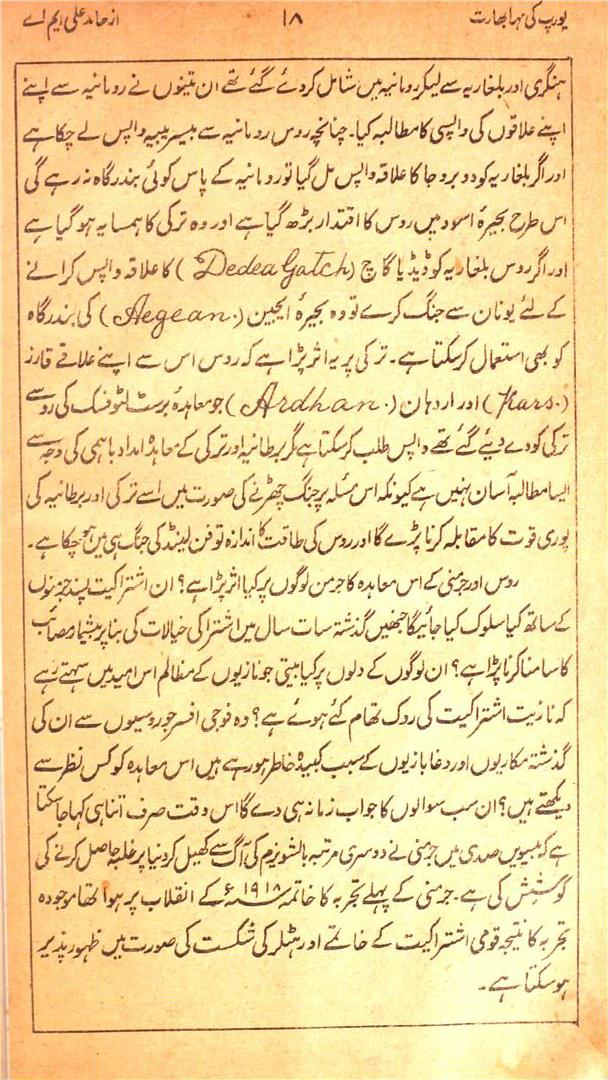 یورپ کی مہابھارت ۱۸ از حامد علی ایم اے
ہنگری اور بلغاریہ سے لیکر رومانیہ میں شامل کردئے گئے تھے ان تینوں نے رومانیہ سے اپنے
اپنے علاقوں کی واپسی کا مطالبہ کیا۔ چنانچہ روس رومانیہ سے بیسربیبیہ واپس لے چکا ہے
اور اگر بلغاریہ کو دوبروجا کا علاقہ واپس مل گیا تو رومانیہ کے پاس کوئی بندرگاہ نہ رہے گی
اس طرح بحیرۂ اسود میں روس کا اقتدار بڑھ گیا ہے اور وہ ترکی کا ہمسایہ ہو گیا ہے
اور اگر روس بلغاریہ کو ڈیڈیا گاچ (Dedea Gatch) کا علاقہ واپس کرانے
کے لئے یونان سے جنگ کرے تو وہ بحیرۂ ایجین (Aegean.) کی بندرگاہ
کو بھی استعمال کرسکتا ہے۔ ترکی پر یہ اثر پڑا ہے کہ روس اس سے اپنے علاقے قارز
(Kars.) اور اردہان (Ardhan.) جو معاہدۂ برسٹ لٹوفسک کی رو سے
ترکی کو دے دیئے گئے تھے واپس طلب کرسکتا ہے مگر برطانیہ اور ترکی کے معاہدۂ امداد باہمی کی وجہ سے
ایسا مطالبہ آسان نہیں ہے کیونکہ اس مسئلہ پر جنگ چھڑنے کی صورت میں اسے ترکی اور برطانیہ کی
پوری قوت کا مقابلہ کرنا پڑے گا اور روس کی طاقت کا اندازہ تو فن لینڈ کی جنگ ہی میں ہو چکا ہے۔
روس اور جرمنی کے اس معاہدہ کا جرمن لوگوں پر کیا اثر پڑا ہے؟ ان اشتراکیت پسند جرمنوں
کے ساتھ کیا سلوک کیا جائیگا جنھیں گذشتہ سات سال میں اشتراکی خیالات کی بنا پر بیشمار مصائب
کا سامنا کرنا پڑا ہے؟ ان لوگوں کے دلوں پر کیا بیتی جو نازیوں کے مظالم اس امید میں سہتے رہے
کہ نازیت اشتراکیت کی روک تھام کئے ہوئے ہے؟ وہ فوجی افسر جو روسیوں سے ان کی
گذشتہ مکاریوں اور دغا بازیوں کے سبب کبیدہ خاطر ہو رہے ہیں اس معاہدہ کو کس نظر سے
دیکھتے ہیں؟ ان سب سوالوں کا جواب زمانہ ہی دے گا اس وقت صرف اتنا ہی کہا جا سکتا
ہے کہ بیسویں صدی میں جرمنی نے دوسری مرتبہ بالشویزم کی آگ سے کھیل کر دنیا پر غلبہ حاصل کرنے کی
کوشش کی ہے۔ جرمنی کے پہلے تجربہ کا خاتمہ ۱۹۱۸ء کے انقلاب پر ہوا تھا موجودہ
تجربہ کا نتیجہ قومی اشتراکیت کے خاتمے اور ہٹلر کی شکست کی صورت میں ظہور پذیر
ہو سکتا ہے۔